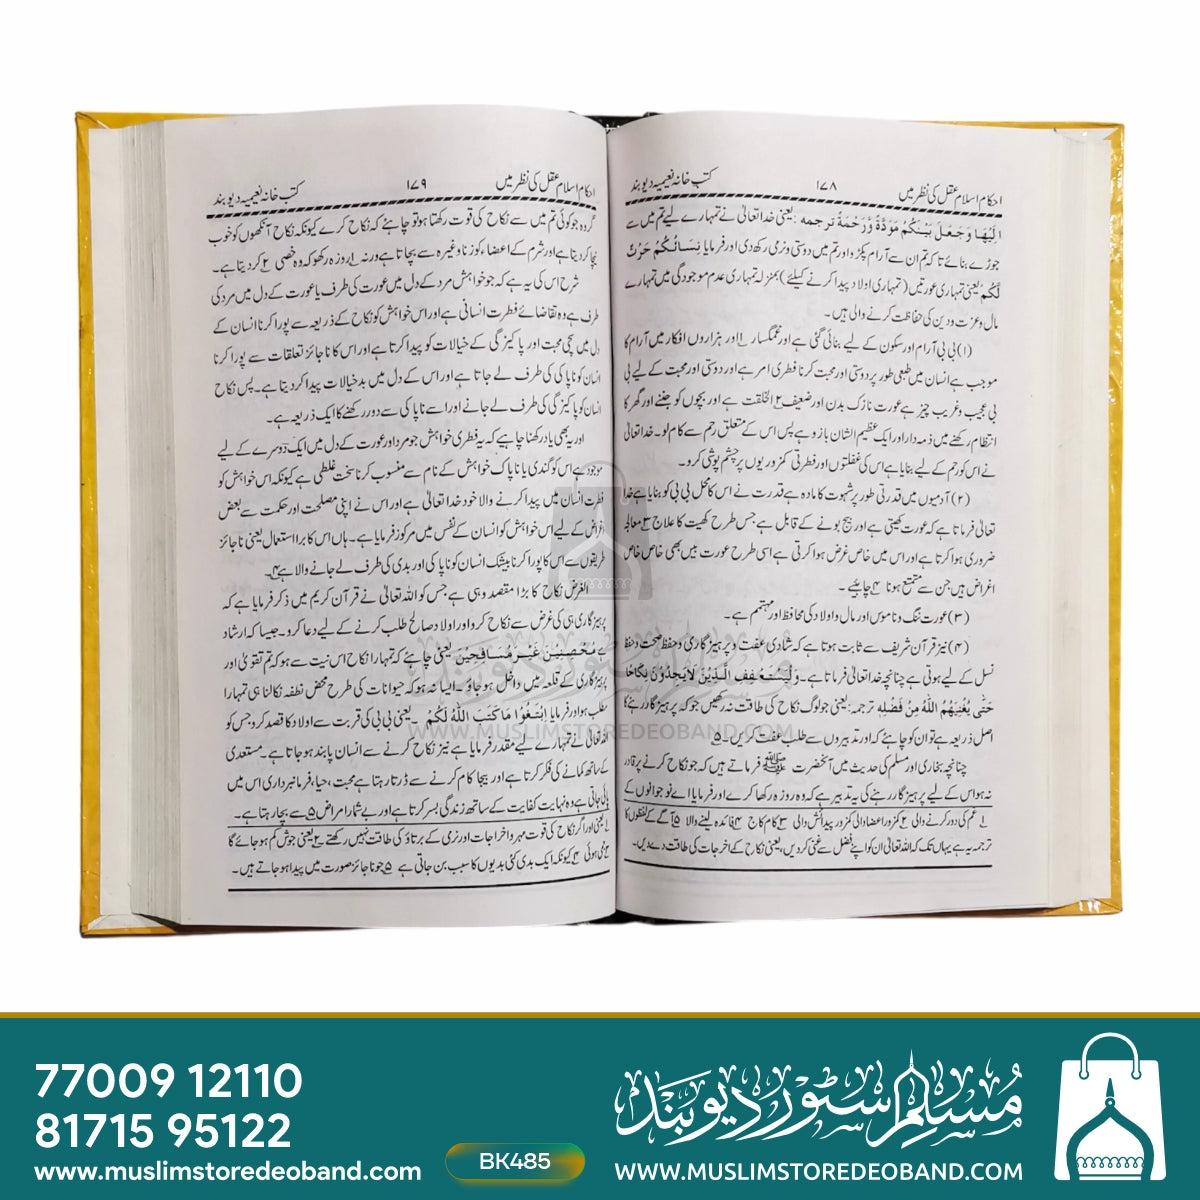 احکام اسلام عقل کی نظر میں ۱۷۸ کتب خانہ نعیمیہ دیوبند
اِلَیْهَا وَجَعَلَ بَیْنَکُمْ مَوَدَّةً وَّرَحْمَةً ترجمہ: یعنی خدا تعالیٰ نے تمہارے لیے تم میں سے
جوڑے بنائے تاکہ تم ان سے آرام پکڑو اور تم میں دوستی و نرمی رکھ دی اور فرمایا نِسَائُکُمْ حَرْثٌ
لَّکُمْ یعنی تمہاری عورتیں (تمہاری اولاد پیدا کرنے کیلئے) بمنزلہ تمہاری عدم موجودگی میں تمہارے
مال و عزت و دین کی حفاظت کرنے والی ہیں۔
(۱) بی بی آرام اور سکون کے لیے بنائی گئی ہے اور غمگسار ۱ اور ہزاروں افکار میں آرام کا
موجب ہے انسان میں طبعی طور پر دوستی اور محبت کرنا فطری امر ہے اور دوستی اور محبت کے لیے بی
بی عجیب و غریب چیز ہے عورت نازک بدن اور ضعیف ۲ الخلقت ہے اور بچوں کو جننے اور گھر کا
انتظام رکھنے میں ذمہ دار اور ایک عظیم الشان بازو ہے پس اس کے متعلق رحم سے کام لو۔ خدا تعالیٰ
نے اس کو رحم کے لیے بنایا ہے اس کی غفلتوں اور فطرتی کمزوریوں پر چشم پوشی کرو۔
(۲) آدمیوں میں قدرتی طور پر شہوت کا مادہ ہے قدرت نے اس کا محل بی بی کو بنایا ہے خدا
تعالیٰ فرماتا ہے کہ عورت کھیتی ہے اور بیج بونے کے قابل ہے جس طرح کھیت کا علاج ۳ معالجہ
ضروری ہوا کرتا ہے اور اس میں خاص غرض ہوا کرتی ہے اسی طرح عورت بیں بھی خاص خاص
اغراض ہیں جن سے متمتع ہونا ۴ چاہیئے۔
(۳) عورت ننگ و ناموس اور مال و اولاد کی محافظ اور مہتمم ہے۔
(۴) نیز قرآن شریف سے ثابت ہوتا ہے کہ شادی عفت و پرہیزگاری و حفظ صحت و حفظ
نسل کے لیے ہوتی ہے چنانچہ خدا تعالیٰ فرماتا ہے۔ وَلْیَسْتَعْفِفِ الَّذِیْنَ لَایَجِدُوْنَ نِکَاحًا
حَتّٰی یُغْنِیَهُمُ اللّٰهُ مِنْ فَضْلِهٖ ترجمہ: یعنی جو لوگ نکاح کی طاقت نہ رکھیں جو کہ پرہیزگار رہنے کا
اصل ذریعہ ہے تو ان کو چاہئے کہ اور تدبیروں سے طلب عفت کریں۔ ۵
چنانچہ بخاری اور مسلم کی حدیث میں آنحضرت ﷺ فرماتے ہیں کہ جو نکاح کرنے پر قادر
نہ ہو اس کے لیے پرہیزگار رہنے کی یہ تدبیر ہے کہ وہ روزہ رکھا کرے اور فرمایا اے نوجوانوں کے
۱ غم کی دور کرنے والی ۲ کمزور اعضا والی کمزور پیدائش والی ۳ کام کاج ۴ فائدہ لینے والا ۵ آگے کے لفظوں کا
ترجمہ یہ ہے یہاں تک کہ اللہ تعالیٰ ان کو اپنے فضل سے غنی کردیں، یعنی نکاح کے اخراجات کی طاقت دے دیں۔
احکام اسلام عقل کی نظر میں ۱۷۹ کتب خانہ نعیمیہ دیوبند
گروہ جو کوئی تم میں سے نکاح کی قوت رکھتا ہو تو چاہئے کہ نکاح کرے کیونکہ نکاح آنکھوں کو خوب
نیچا کر دیتا ہے اور شرم کے اعضاء کو زنا وغیرہ سے بچاتا ہے ورنہ ۱ روزہ رکھو کہ وہ خصی ۲ کر دیتا ہے۔
شرح اس کی یہ ہے کہ جو خواہش مرد کے دل میں عورت کی طرف یا عورت کے دل میں مرد کی
طرف ہے وہ تقاضائے فطرت انسانی ہے اور اس خواہش کو نکاح کے ذریعہ سے پورا کرنا انسان کے
دل میں سچی محبت اور پاکیزگی کے خیالات کو پیدا کرتا ہے اور اس کا ناجائز تعلقات سے پورا کرنا
انسان کو ناپاکی کی طرف لے جاتا ہے اور اس کے دل میں بد خیالات پیدا کر دیتا ہے۔ پس نکاح
انسان کو پاکیزگی کی طرف لے جانے اور اسے ناپاکی سے دور رکھنے کا ایک ذریعہ ہے۔
اور یہ بھی یاد رکھنا چاہئے کہ یہ فطری خواہش جو مرد اور عورت کے دل میں ایک دوسرے کے لیے
موجود ہے اس کو گندی یا ناپاک خواہش کے نام سے منسوب کرنا سخت غلطی ہے کیونکہ اس خواہش کو
فطرت انسان میں پیدا کرنے والا خود خدا تعالیٰ ہے اور اس نے اپنی مصلحت اور حکمت سے بعض
اغراض کے لیے اس خواہش کو انسان کے نفس میں مرکوز فرمایا ہے۔ ہاں اس کا برا استعمال یعنی ناجائز
طریقوں سے اس کا پورا کرنا بیشک انسان کو ناپاکی اور بدی کی طرف لے جانے والا ہے ۴۔
الغرض نکاح کا بڑا مقصد وہی ہے جس کو اللہ تعالیٰ نے قرآن کریم میں ذکر فرمایا ہے کہ
پرہیزگاری ہی کی غرض سے نکاح کرو اور اولاد صالح طلب کرنے کے لیے دعا کرو۔ جیسا کہ ارشاد
ہے مُحْصِنِیْنَ غَیْرَ مُسَافِحِیْنَ یعنی چاہئے کہ تمہارا نکاح اس نیت سے ہو کہ تم تقویٰ اور
پرہیزگاری کے قلعہ میں داخل ہو جاؤ۔ ایسا نہ ہو کہ حیوانات کی طرح محض نطفہ نکالنا ہی تمہارا
مطلب ہو اور فرمایا اِبْتَغُوْا مَا کَتَبَ اللّٰهُ لَکُمْ۔ یعنی بی بی کی قربت سے اولاد کا قصد کرو جس کو
اللہ تعالیٰ نے تمہارے لیے مقدر فرمایا ہے نیز نکاح کرنے سے انسان پابند ہو جاتا ہے۔ مستعدی
کے ساتھ کمانے کی فکر کرتا ہے اور بیجا کام کرنے سے ڈرتا رہتا ہے محبت، حیا، فرمانبرداری اس میں
پائی جاتی ہے وہ نہایت کفایت کے ساتھ زندگی بسر کرتا ہے اور بے شمار امراض ۵ سے بچا رہتا ہے۔
۱ یعنی اور اگر نکاح کی قوت مہر و اخراجات اور نرمی کے برتاؤ کی طاقت نہیں رکھتے ۲ یعنی جوش کم ہو جائے گا
۴ کیونکہ ایک بدی کئی بدیوں کا سبب بن جاتی ہے ۵ جو ناجائز صورت میں پیدا ہو جاتے ہیں۔
مسلم سٹور دیوبند
WWW.MUSLIMSTOREDEOBAND.COM
77009 12110
81715 95122
www.muslimstoredeoband.com
BK485
مسلم سٹور دیوبند
WWW.MUSLIMSTOREDEOBAND.COM